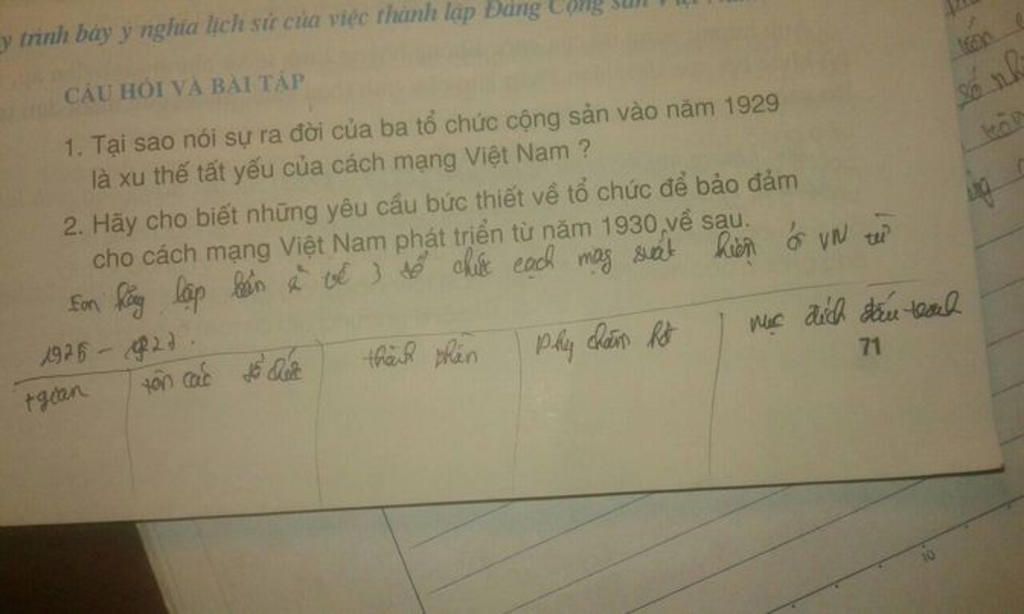 y trình bày ý nghĩa lịch sử của việc thành lập Đảng Cộng sản Việt
CÂU HỎI VÀ BÀI TẬP
1. Tại sao nói sự ra đời của ba tổ chức cộng sản vào năm 1929
là xu thế tất yếu của cách mạng Việt Nam ?
2. Hãy cho biết những yêu cầu bức thiết về tổ chức để bảo đảm
cho cách mạng Việt Nam phát triển từ năm 1930 về sau.
Em hãy lập bản về 3 tổ chức cách mạg xuất hiện ở VN từ
1925 - 1927.
tgian tên các tổ chức thành phần phg châm hđ mục đích đấu tranh
71
10